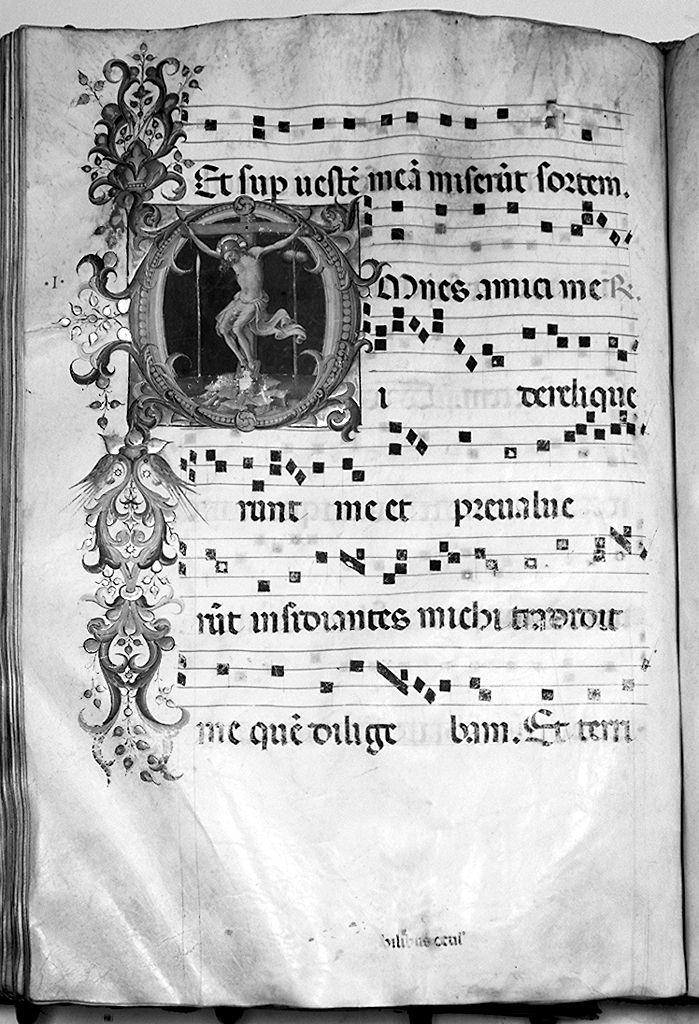 Et sup vestē meā miserūt sortem.
·I·
OMnes amici me R.
i derelique
runt me et prevalue
rūt insidiantes michi tradidit
me quē dilige bam. Et terri
bilibus ocul'